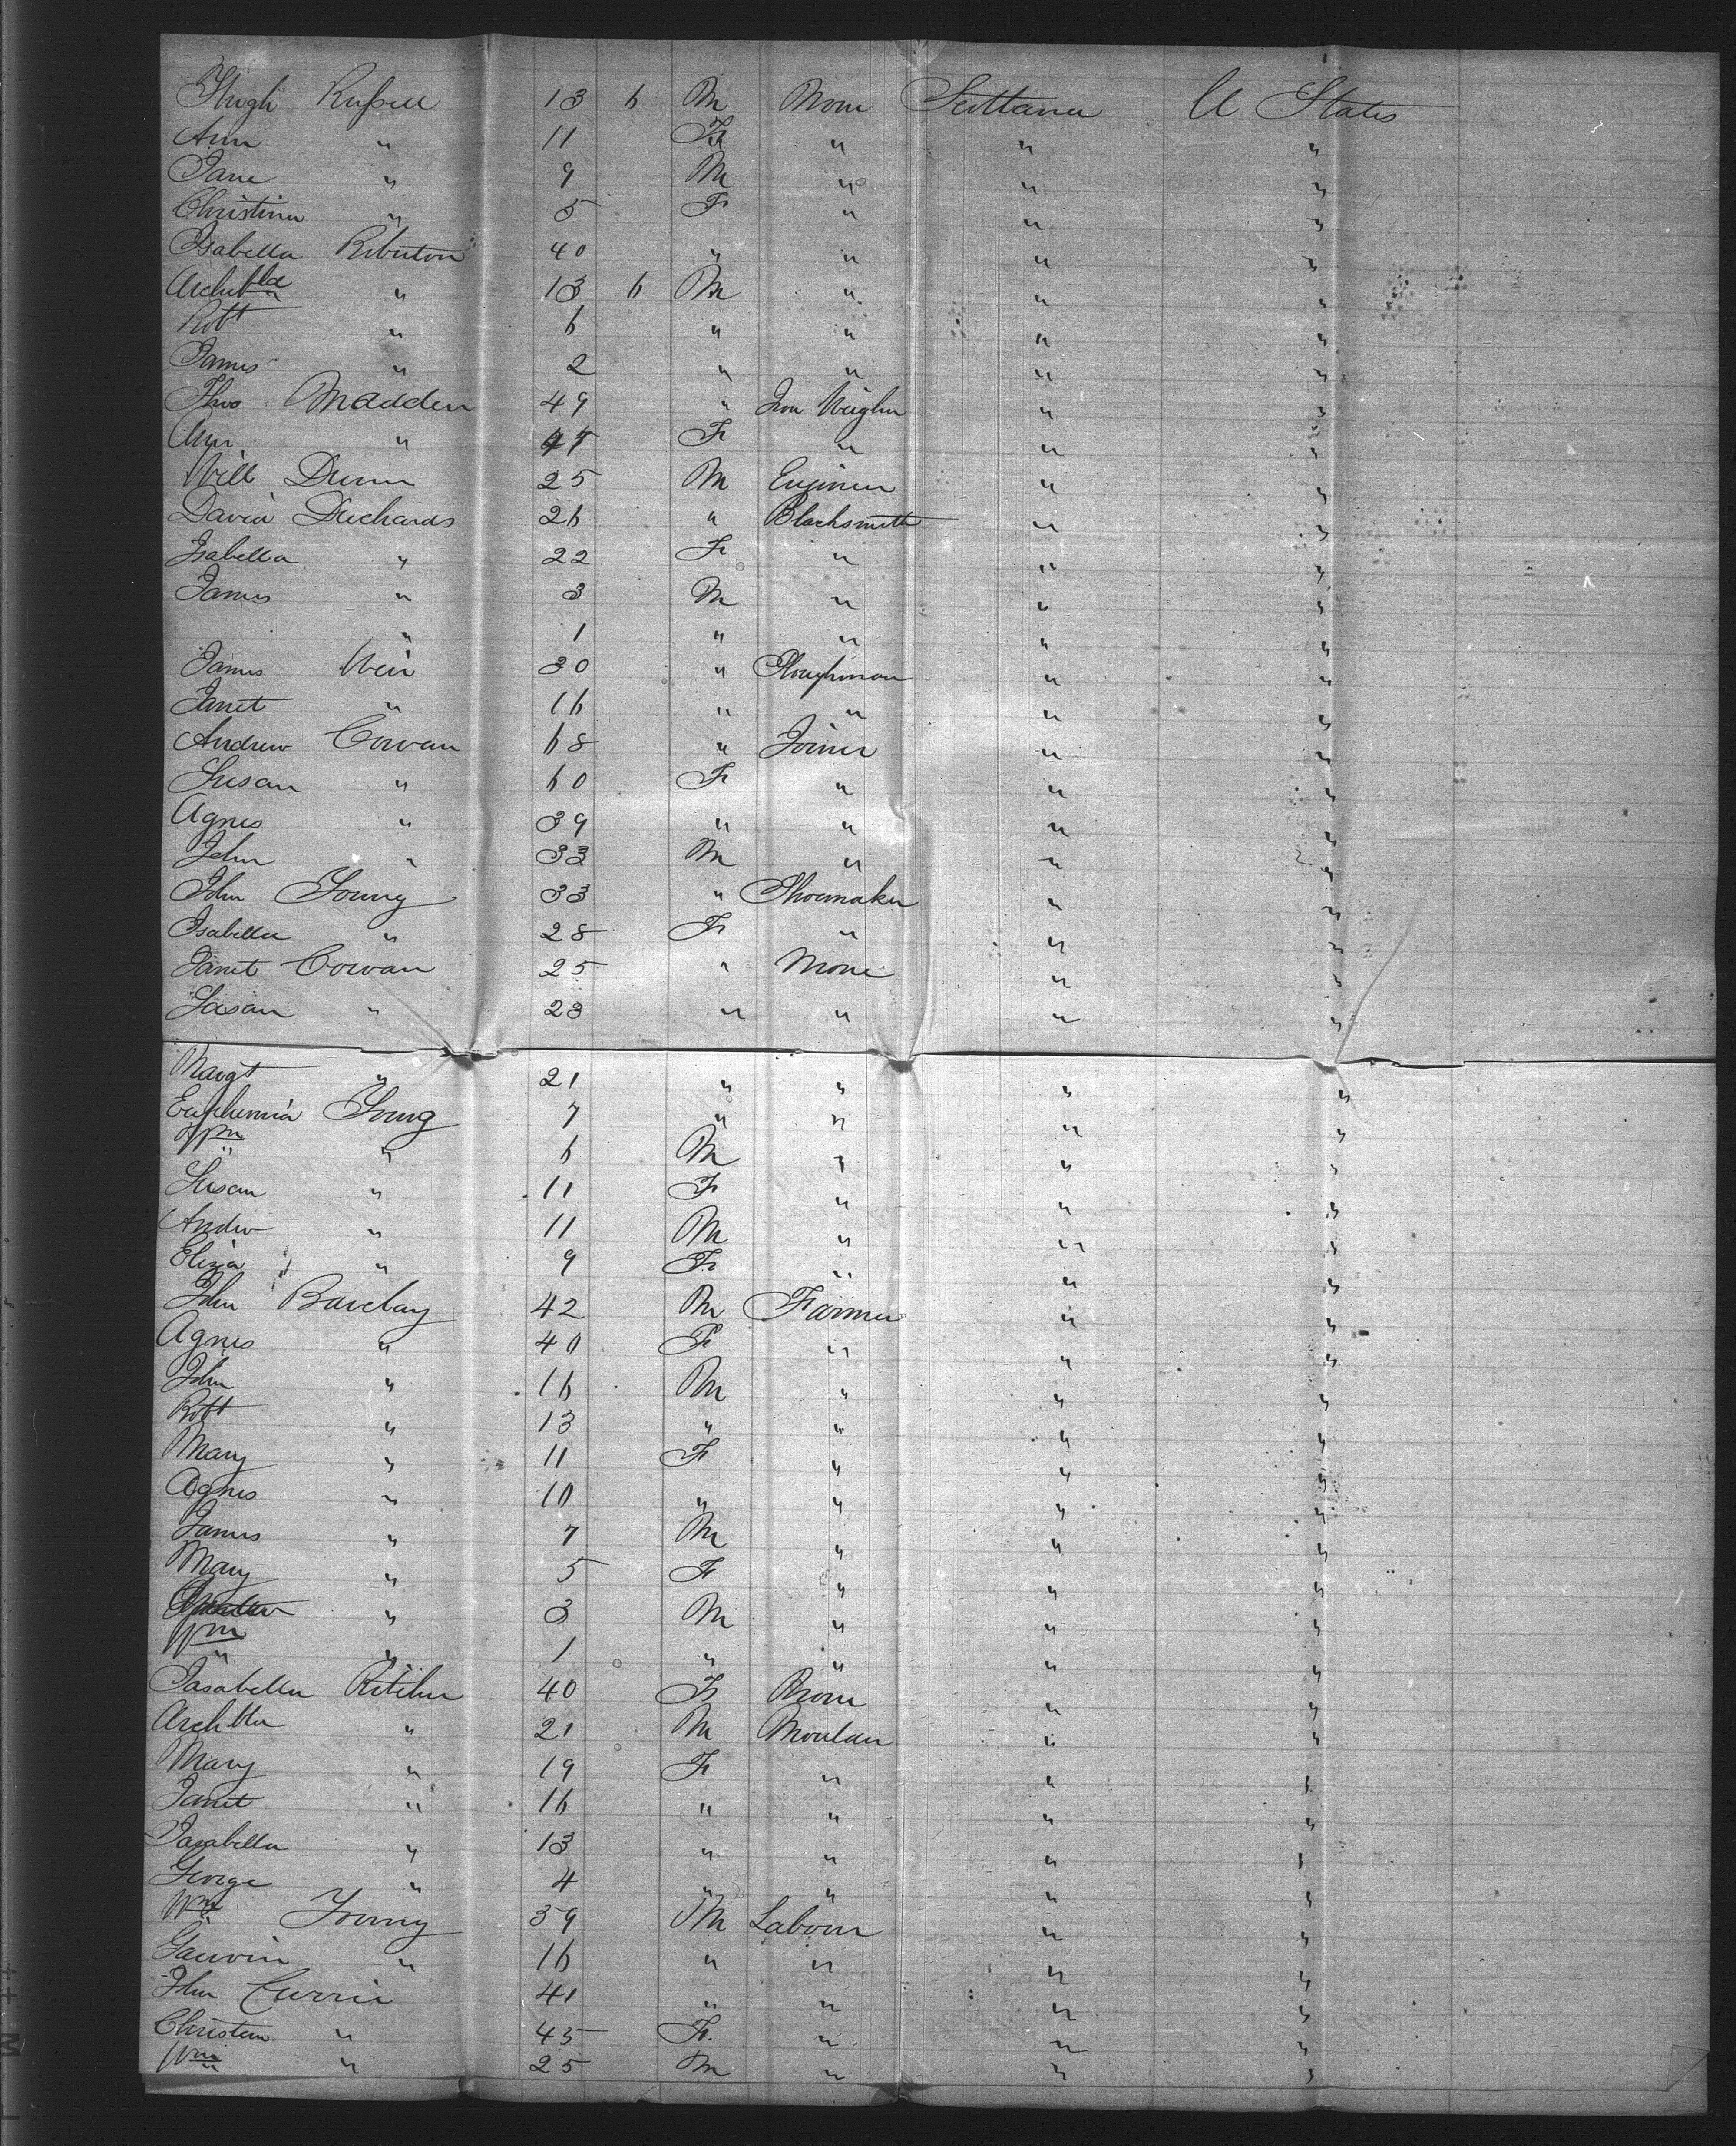 Hugh Russell 13 6 M None Scotland U States
Ann " 11 F " " "
Jane " 9 M " " "
Christina " 5 F " " "
Isabella 40 " " " "
Archibld " 13 6 M " " "
Robt " 6 " " " "
James " 2 " " " "
Thos Madden 49 " Iron Weigher " "
Ann " 47 F " " "
Will Dunn 25 M Engineer " "
David 26 " Blacksmith " "
Isabella " 22 F " " "
James " 3 M " " "
" 1 " " " "
James Weir 30 " Ploughman " "
Janet " 16 " " " "
Andrew Cowan 68 " Joiner " "
Susan " 60 F " " "
Agnes " 39 " " " "
John " 33 M " " "
John Young 33 " Shoemaker " "
Isabella " 28 F " " "
Janet Cowan 25 " None " "
Susan " 23 " " " "
Margt " 21 " " " "
Euphemia Young 7 " " " "
Wm " 6 M " " "
Susan " 11 F " " "
Andw " 11 M " " "
Eliza " 9 F " " "
John Barclay 42 M Farmer " "
Agnes " 40 F " " "
John " 16 M " " "
Robt " 13 " " " "
Mary " 11 F " " "
Agnes " 10 " " " "
James " 7 M " " "
Mary " 5 F " " "
" 3 M " " "
Wm " 1 " " " "
Isabella Ritchie 40 F None " "
" 21 M Moulder " "
Mary " 19 F " " "
Janet " 16 " " " "
Isabella " 13 " " " "
George " 4 " " " "
Wm Young 39 M Labour " "
Gauvin " 16 " " " "
Jhn Currie 41 " " " "
Christina " 45 F. " " "
Wm " 25 M " " "